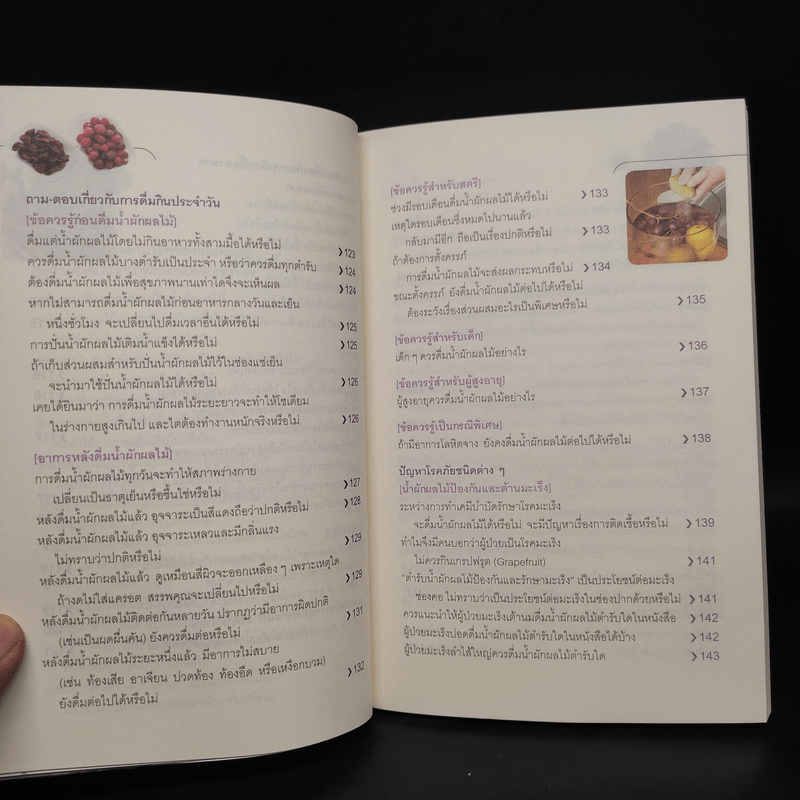 ถาม-ตอบเกี่ยวกับการดื่มกินประจำวัน
[ข้อควรรู้ก่อนดื่มน้ำผักผลไม้]
ดื่มแต่น้ำผักผลไม้โดยไม่กินอาหารทั้งสามมื้อได้หรือไม่ ❯123
ควรดื่มน้ำผักผลไม้บางตำรับเป็นประจำ หรือว่าควรดื่มทุกตำรับ ❯124
ต้องดื่มน้ำผักผลไม้เพื่อสุขภาพนานเท่าใดจึงจะเห็นผล ❯124
หากไม่สามารถดื่มน้ำผักผลไม้ก่อนอาหารกลางวันและเย็น
หนึ่งชั่วโมง จะเปลี่ยนไปดื่มเวลาอื่นได้หรือไม่ ❯125
การปั่นน้ำผักผลไม้เติมน้ำแข็งได้หรือไม่ ❯125
ถ้าเก็บส่วนผสมสำหรับปั่นน้ำผักผลไม้ไว้ในช่องแช่เย็น
จะนำมาใช้ปั่นน้ำผักผลไม้ได้หรือไม่ ❯126
เคยได้ยินมาว่า การดื่มน้ำผักผลไม้ระยะยาวจะทำให้โซเดียม
ในร่างกายสูงเกินไป และไตต้องทำงานหนักจริงหรือไม่ ❯126
[อาการหลังดื่มน้ำผักผลไม้]
การดื่มน้ำผักผลไม้ทุกวันจะทำให้สภาพร่างกาย
เปลี่ยนเป็นธาตุเย็นหรือชื้นใช่หรือไม่ ❯127
หลังดื่มน้ำผักผลไม้แล้ว อุจจาระเป็นสีแดงถือว่าปกติหรือไม่ ❯128
หลังดื่มน้ำผักผลไม้แล้ว อุจจาระเหลวและมีกลิ่นแรง
ไม่ทราบว่าปกติหรือไม่ ❯129
หลังดื่มน้ำผักผลไม้แล้ว ดูเหมือนสีผิวจะออกเหลือง ๆ เพราะเหตุใด
ถ้างดไม่ใส่แครอต สรรพคุณจะเปลี่ยนไปหรือไม่ ❯129
หลังดื่มน้ำผักผลไม้ติดต่อกันหลายวัน ปรากฏว่ามีอาการผิดปกติ
(เช่นเป็นผดผื่นคัน) ยังควรดื่มต่อหรือไม่ ❯131
หลังดื่มน้ำผักผลไม้ระยะหนึ่งแล้ว มีอาการไม่สบาย
(เช่น ท้องเสีย อาเจียน ปวดท้อง ท้องอืด หรือเหงือกบวม)
ยังดื่มต่อไปได้หรือไม่ ❯132
[ข้อควรรู้สำหรับสตรี]
ช่วงมีรอบเดือนดื่มน้ำผักผลไม้ได้หรือไม่ ❯133
เหตุใดรอบเดือนซึ่งหมดไปนานแล้ว
กลับมามีอีก ถือเป็นเรื่องปกติหรือไม่ ❯133
ถ้าต้องการตั้งครรภ์
การดื่มน้ำผักผลไม้จะส่งผลกระทบหรือไม่ ❯134
ขณะตั้งครรภ์ ยังดื่มน้ำผักผลไม้ต่อไปได้หรือไม่
ต้องระวังเรื่องส่วนผสมอะไรเป็นพิเศษหรือไม่ ❯135
[ข้อควรรู้สำหรับเด็ก]
เด็ก ๆ ควรดื่มน้ำผักผลไม้อย่างไร ❯136
[ข้อควรรู้สำหรับผู้สูงอายุ]
ผู้สูงอายุควรดื่มน้ำผักผลไม้อย่างไร ❯137
[ข้อควรรู้เป็นกรณีพิเศษ]
ถ้ามีอาการโลหิตจาง ยังคงดื่มน้ำผักผลไม้ต่อไปได้หรือไม่ ❯138
ปัญหาโรคภัยชนิดต่าง ๆ
[น้ำผักผลไม้ป้องกันและต้านมะเร็ง]
ระหว่างการทำเคมีบำบัดรักษาโรคมะเร็ง
จะดื่มน้ำผักผลไม้ได้หรือไม่ จะมีปัญหาเรื่องการติดเชื้อหรือไม่ ❯139
ทำไมจึงมีคนบอกว่าผู้ป่วยเป็นโรคมะเร็ง
ไม่ควรกินเกรปฟรุต (Grapefruit) ❯141
“ตำรับน้ำผักผลไม้ป้องกันและรักษามะเร็ง” เป็นประโยชน์ต่อมะเร็ง
ช่องคอ ไม่ทราบว่าเป็นประโยชน์ต่อมะเร็งในช่องปากด้วยหรือไม่ ❯141
ควรแนะนำให้ผู้ป่วยมะเร็งเต้านมดื่มน้ำผักผลไม้ตำรับใดในหนังสือ ❯142
ผู้ป่วยมะเร็งปอดดื่มน้ำผักผลไม้ตำรับใดในหนังสือได้บ้าง ❯142
ผู้ป่วยมะเร็งลำไส้ใหญ่ควรดื่มน้ำผักผลไม้ตำรับใด ❯143